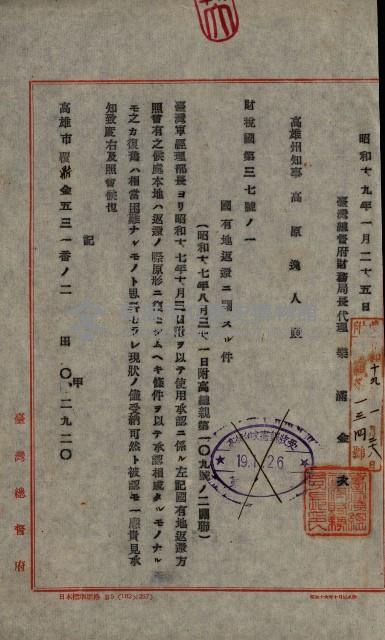 昭和十九年一月二十五日
臺灣總督府財務局長代理
高雄州知事 高原逸人殿
財税國第三七號ノ一
國有地返還ニ關スル件
(昭和十七年八月三十一日附高總親第一〇九號ノ二關聯)
臺灣軍經理部長ヨリ昭和十七年十月三日附ヲ以テ使用承認ニ係ル左記國有地返還方
照會有之候處本地ハ返還ノ際原形ニ復セシムヘキ條件ヲ以テ承認相成タルモノナル
モ之カ復舊ハ相當困難ナルモノト思料セラレ現狀ノ儘受納可然ト被認モ一應貴見承
知致度右及照會候也
記
高雄市 金五三一番ノ二 田 〇甲二九二〇
臺灣總督府
19.1.26
十九
一三四
日本標準規格 B5 (182×257)